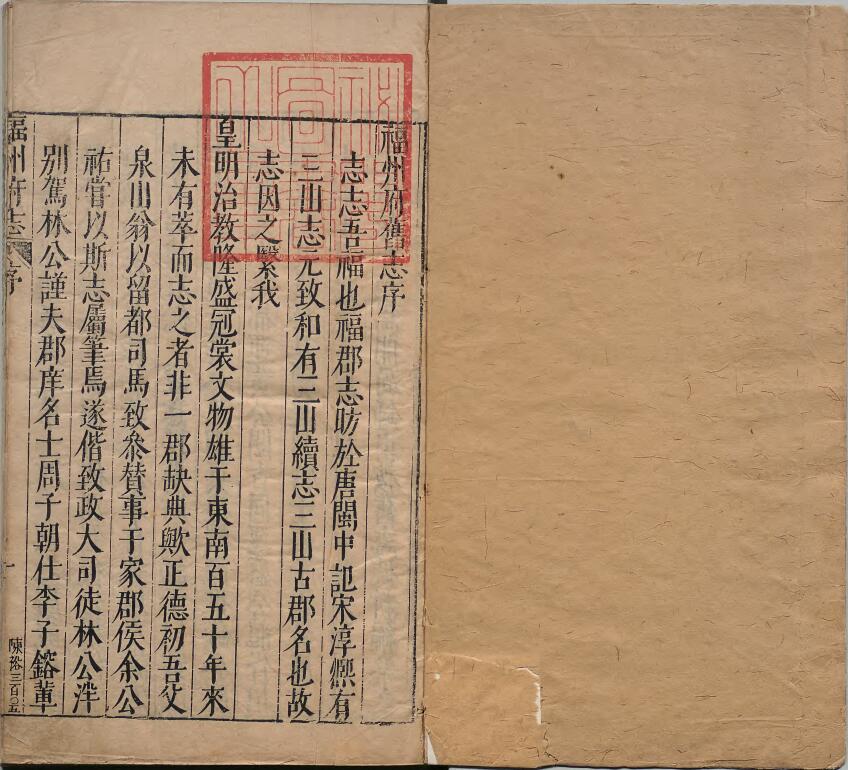 福州府舊志序
志志吾福也福郡志昉於唐閩中記宋淳熈有
三山志元致和有三山續志三山古郡名也故
志因之繄我
皇明治教隆盛冠裳文物雄于東南百五十年來
未有萃而志之者非一郡缺典歟正德初吾父
泉山翁以留都司馬致叅賛事于家郡侯余公
祐嘗以斯志屬筆焉遂偕致政大司徒林公泮
別駕林公謹夫郡庠名士周子朝仕李子鎔軰
福州府志
序
一
陳裕三百〇五